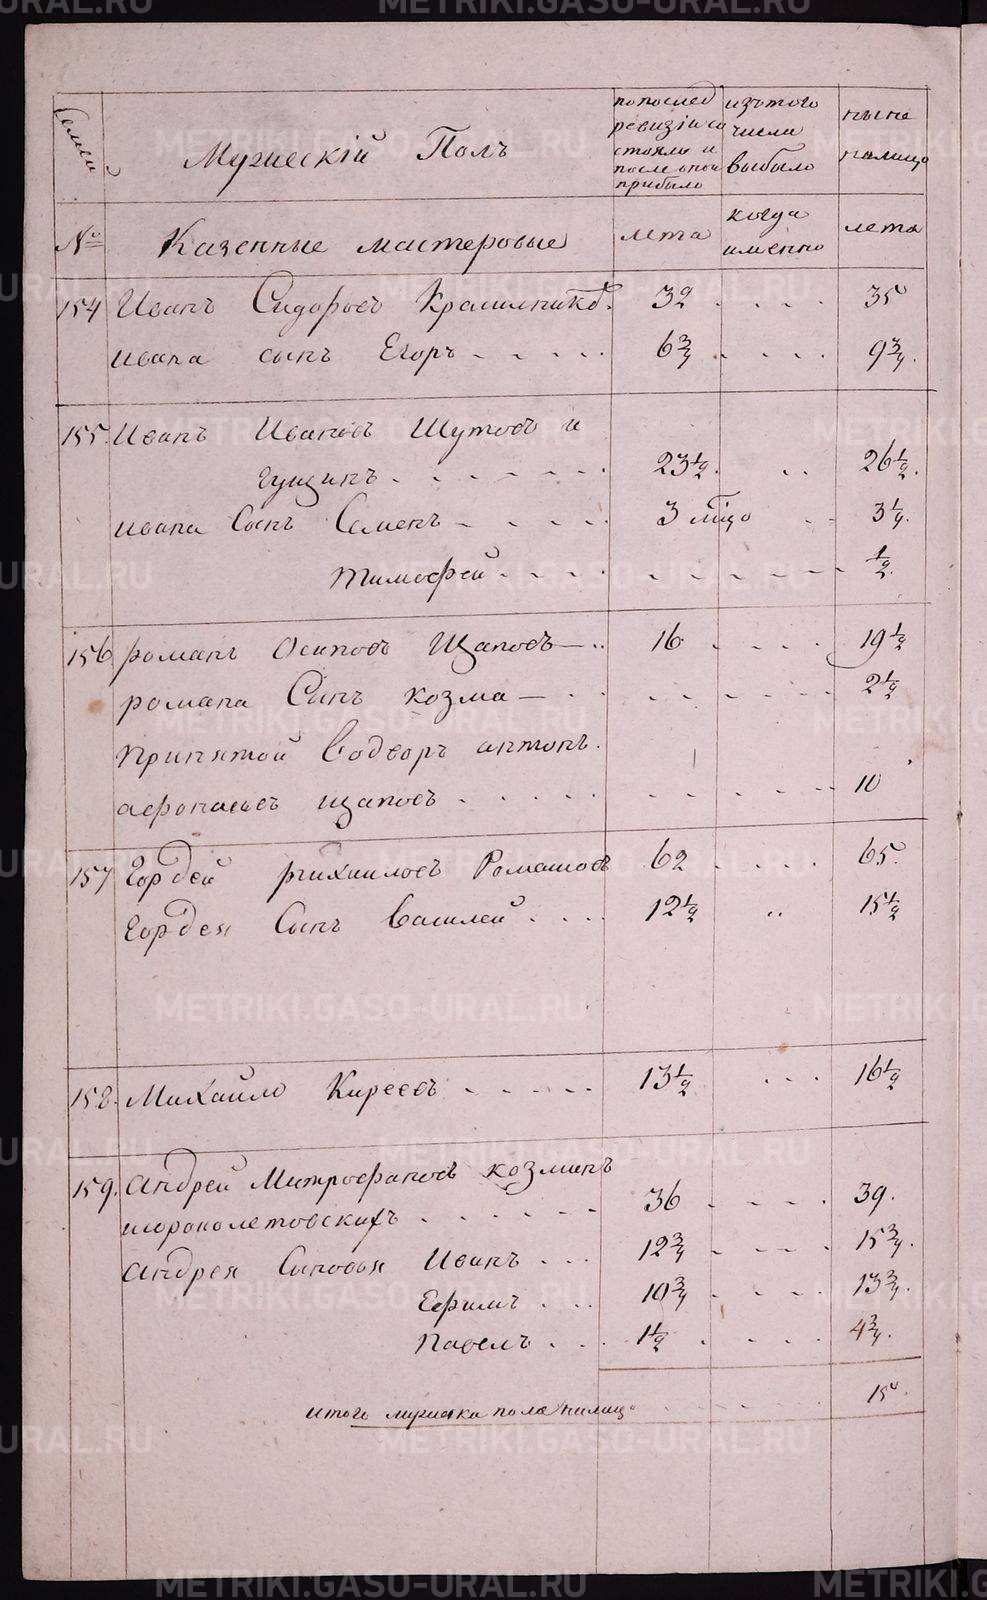 METRIKI.GASO-URAL.RU
Семей
Мужескiй Полъ
попослед
ревизiи со
стояло и
после оной
прибыло
изътого
числа
выбыло
ныне
налицо
№
Казенные мастеровые
лета
когда
имянно
лета
154 Иванъ Сидоровъ Красилников. 32 . . . . 35
ивана сынъ Егоръ - - - - - 6 3/4 . . . . 9 3/4.
155. Иванъ Ивановъ Шутовъ и
гущинъ . - - - - - 23 1/2. . . 26 1/2.
ивана Сынъ Семенъ - - - - . 3 мцо . . 3 1/4.
тимофей . - - - - - - - - 1/2.
156 романъ Осиповъ Щаповъ — .. 16 . . . . 19 1/2
романа Сынъ козма — . . . . . . . . 2 1/2
принятой Водворъ антонъ.
афонасьевъ щаповъ . . . . . . . - - - - 10
157 Гордей михаиловъ Ромашовъ 62 . . . . 65.
Гордея Сынъ Василей . . . . 12 1/2 .. 15 1/2
158. Михайло Киреевъ - - - - - 13 1/2 . . . 16 1/2
159. Андрей Митрофановъ козминъ
и широколетовскихъ . . . . . . 36 . - - . 39.
Андрея Сыновья Иванъ . . . 12 3/4 . - - . 15 3/4.
Ефимъ . . . 10 3/4 . . . . 13 3/4.
Павелъ . . . 1 1/2 . . . . 4 3/4.
итого мужеска пола налицо . . . . . 15.